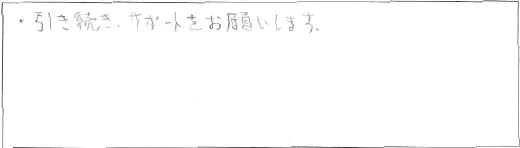 ・引き続き、サポートをお願いします。